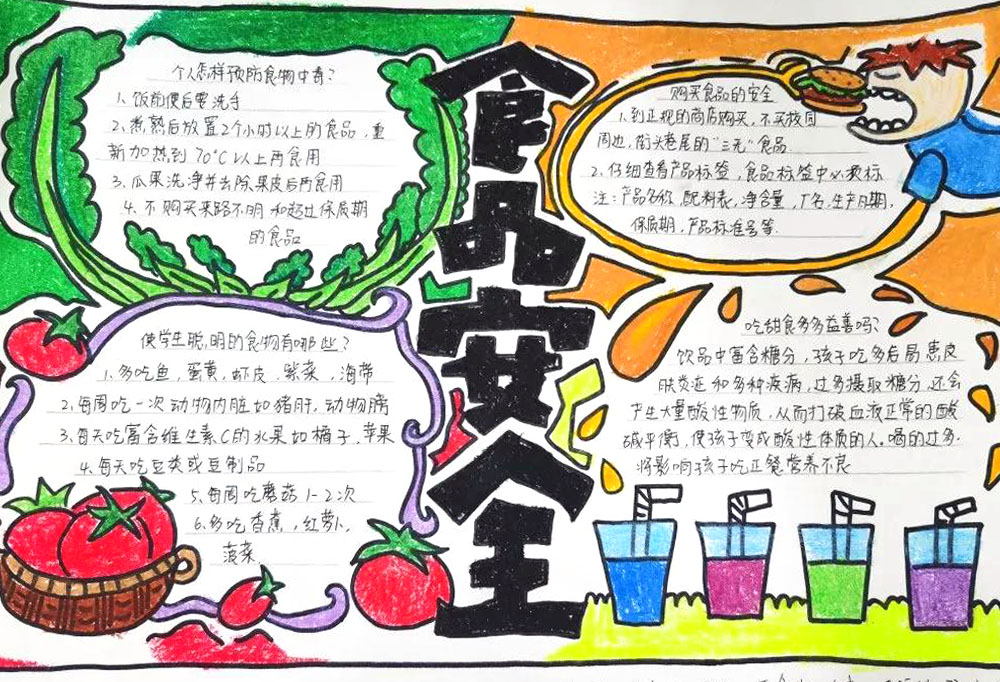 食品安全
个人怎样预防食物中毒?
1、饭前便后要洗手
2、煮熟后放置2个小时以上的食品，重
新加热到70°C以上再食用
3、瓜果洗净并去除果皮后再食用
4、不购买来路不明和超过保质期
的食品
购买食品的安全
1、到正规的商店购买，不买校园
周边，街头巷尾的"三无"食品
2、仔细查看产品标签，食品标签中必须标
注：产品名称，配料表，净含量，厂名，生产日期，
保质期，产品标准号等.
使学生聪明的食物有哪些?
1、多吃鱼，蛋黄，虾皮，紫菜，海带
2、每周吃一次动物内脏如猪肝，动物脑
3、每天吃富含维生素C的水果如橘子，苹果
4、每天吃豆类或豆制品
5、每周吃蘑菇1-2次
6、多吃香蕉，红萝卜，
菠菜
吃甜食多多益善吗?
饮品中富含糖分，孩子吃多后易患皮
肤炎症和多种疾病，过多摄取糖分，还会
产生大量酸性物质，从而打破血液正常的酸
碱平衡，使孩子变成酸性体质的人。喝的过多.
将影响孩子吃正餐营养不良